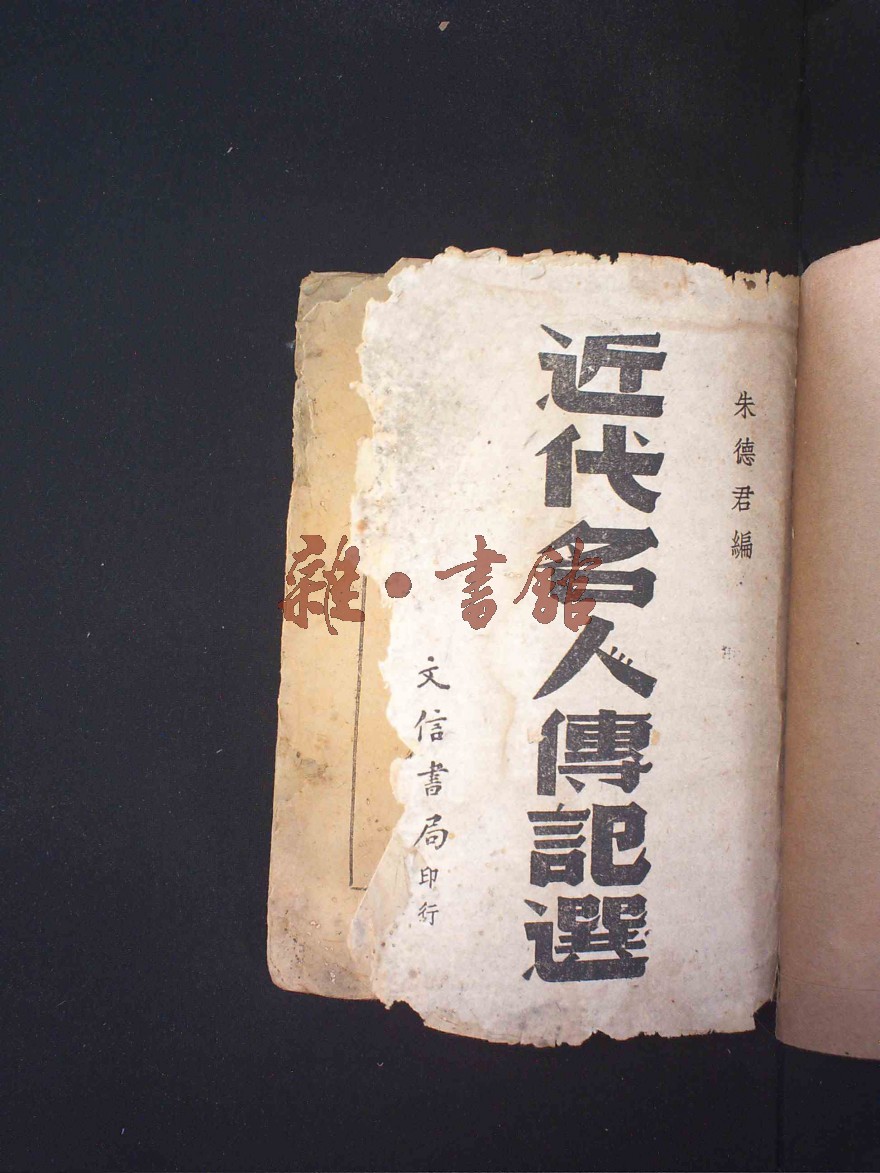 朱德君編
近代名人傳記選
文信書局印行
雜·書館